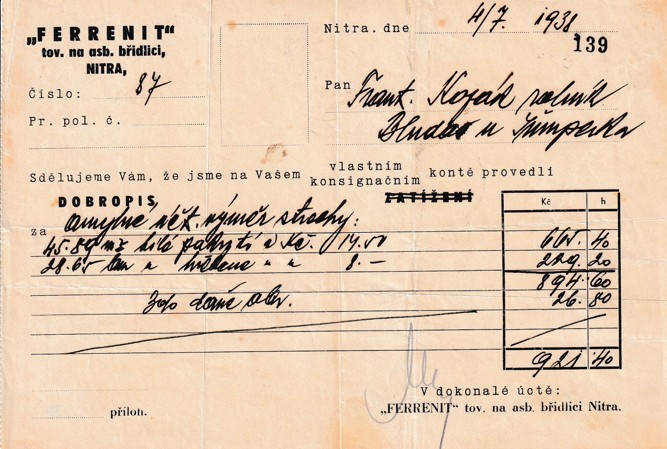 „FERRENIT“
tov. na asb. břidlici,
NITRA,
Nitra. dne 4/7 1938
139
Číslo: 87
Pr. pol. č.
Pan Frant. Koják rolník
Bludov u Šumperka
Sdělujeme Vám, že jsme na Vašem vlastním konsignačním kontě provedli
DOBROPIS ZATÍŽENÍ
Kč h
za omylně účt. výměr střechy:
45.89 m2 bílá à Kč. 14.50 665.40
28.65 bm " " " 8.— 229.20
894.60
3% daně obr. 26.80
921.40
V dokonalé úctě:
„FERRENIT“ tov. na asb. břidlici Nitra.
příloh.